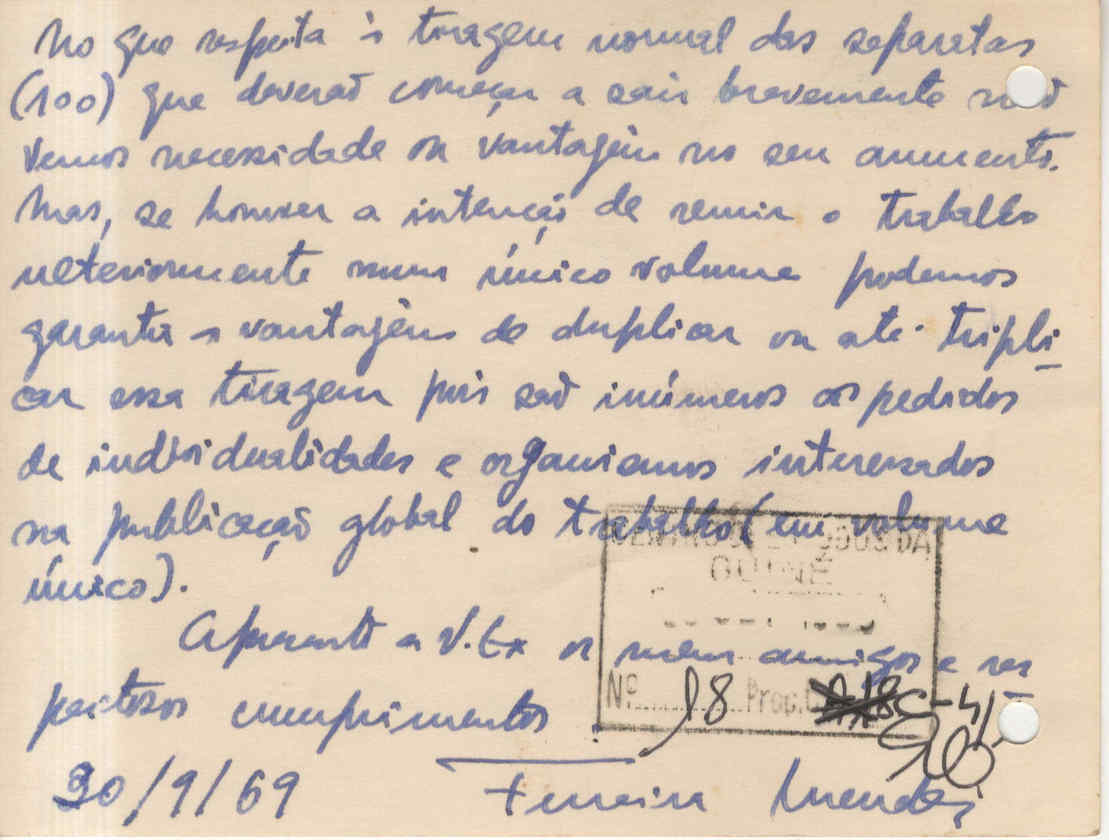 No que respeita à tiragem normal das separatas
(100) que deverão começar a sair brevemente não
vemos necessidade ou vantagem no seu aumento.
Mas, se houver a intenção de reunir o trabalho
ulteriormente num único volume podemos
garantir a vantagem de duplicar ou até tripli-
car essa tiragem pois são inúmeros os pedidos
de individualidades e organismos interessados
na publicação global do trabalho (em volume
único).
Apresento a V. Ex os meus amigos e res
peitosos cumprimentos
GUINÉ
Nº 18 Proc.
30/9/69 Ferreira Mendes